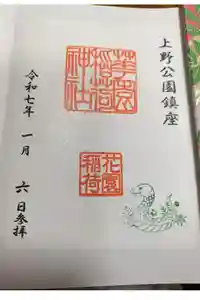 上野公園鎮座
華園
稲荷
神社
花園
稲荷
令和七年 一月 六日参拝